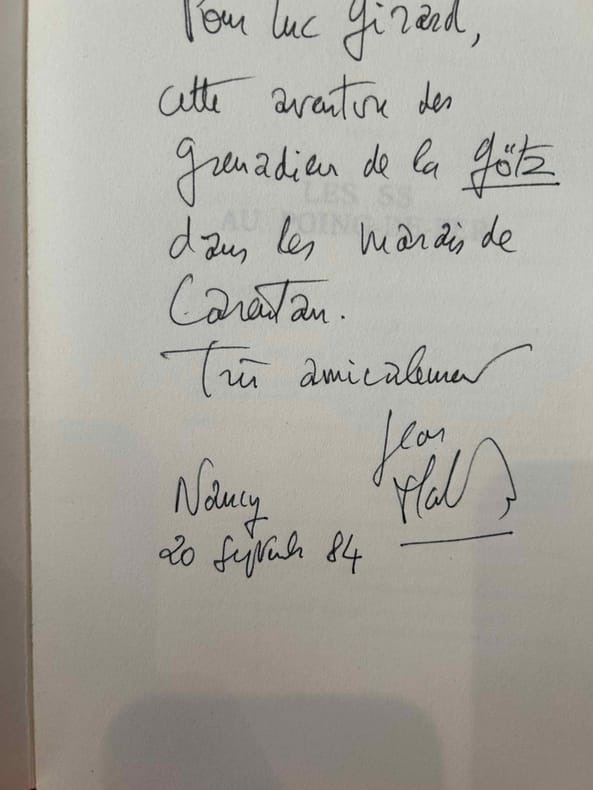 Pour Luc Girard,
cette aventure des
grenadiers de la Götz
LES SS
dans les marais de
AU POING DE FER
Carentan.
Très amicalement
Jean
Mab
Nancy
20 Septembre 84